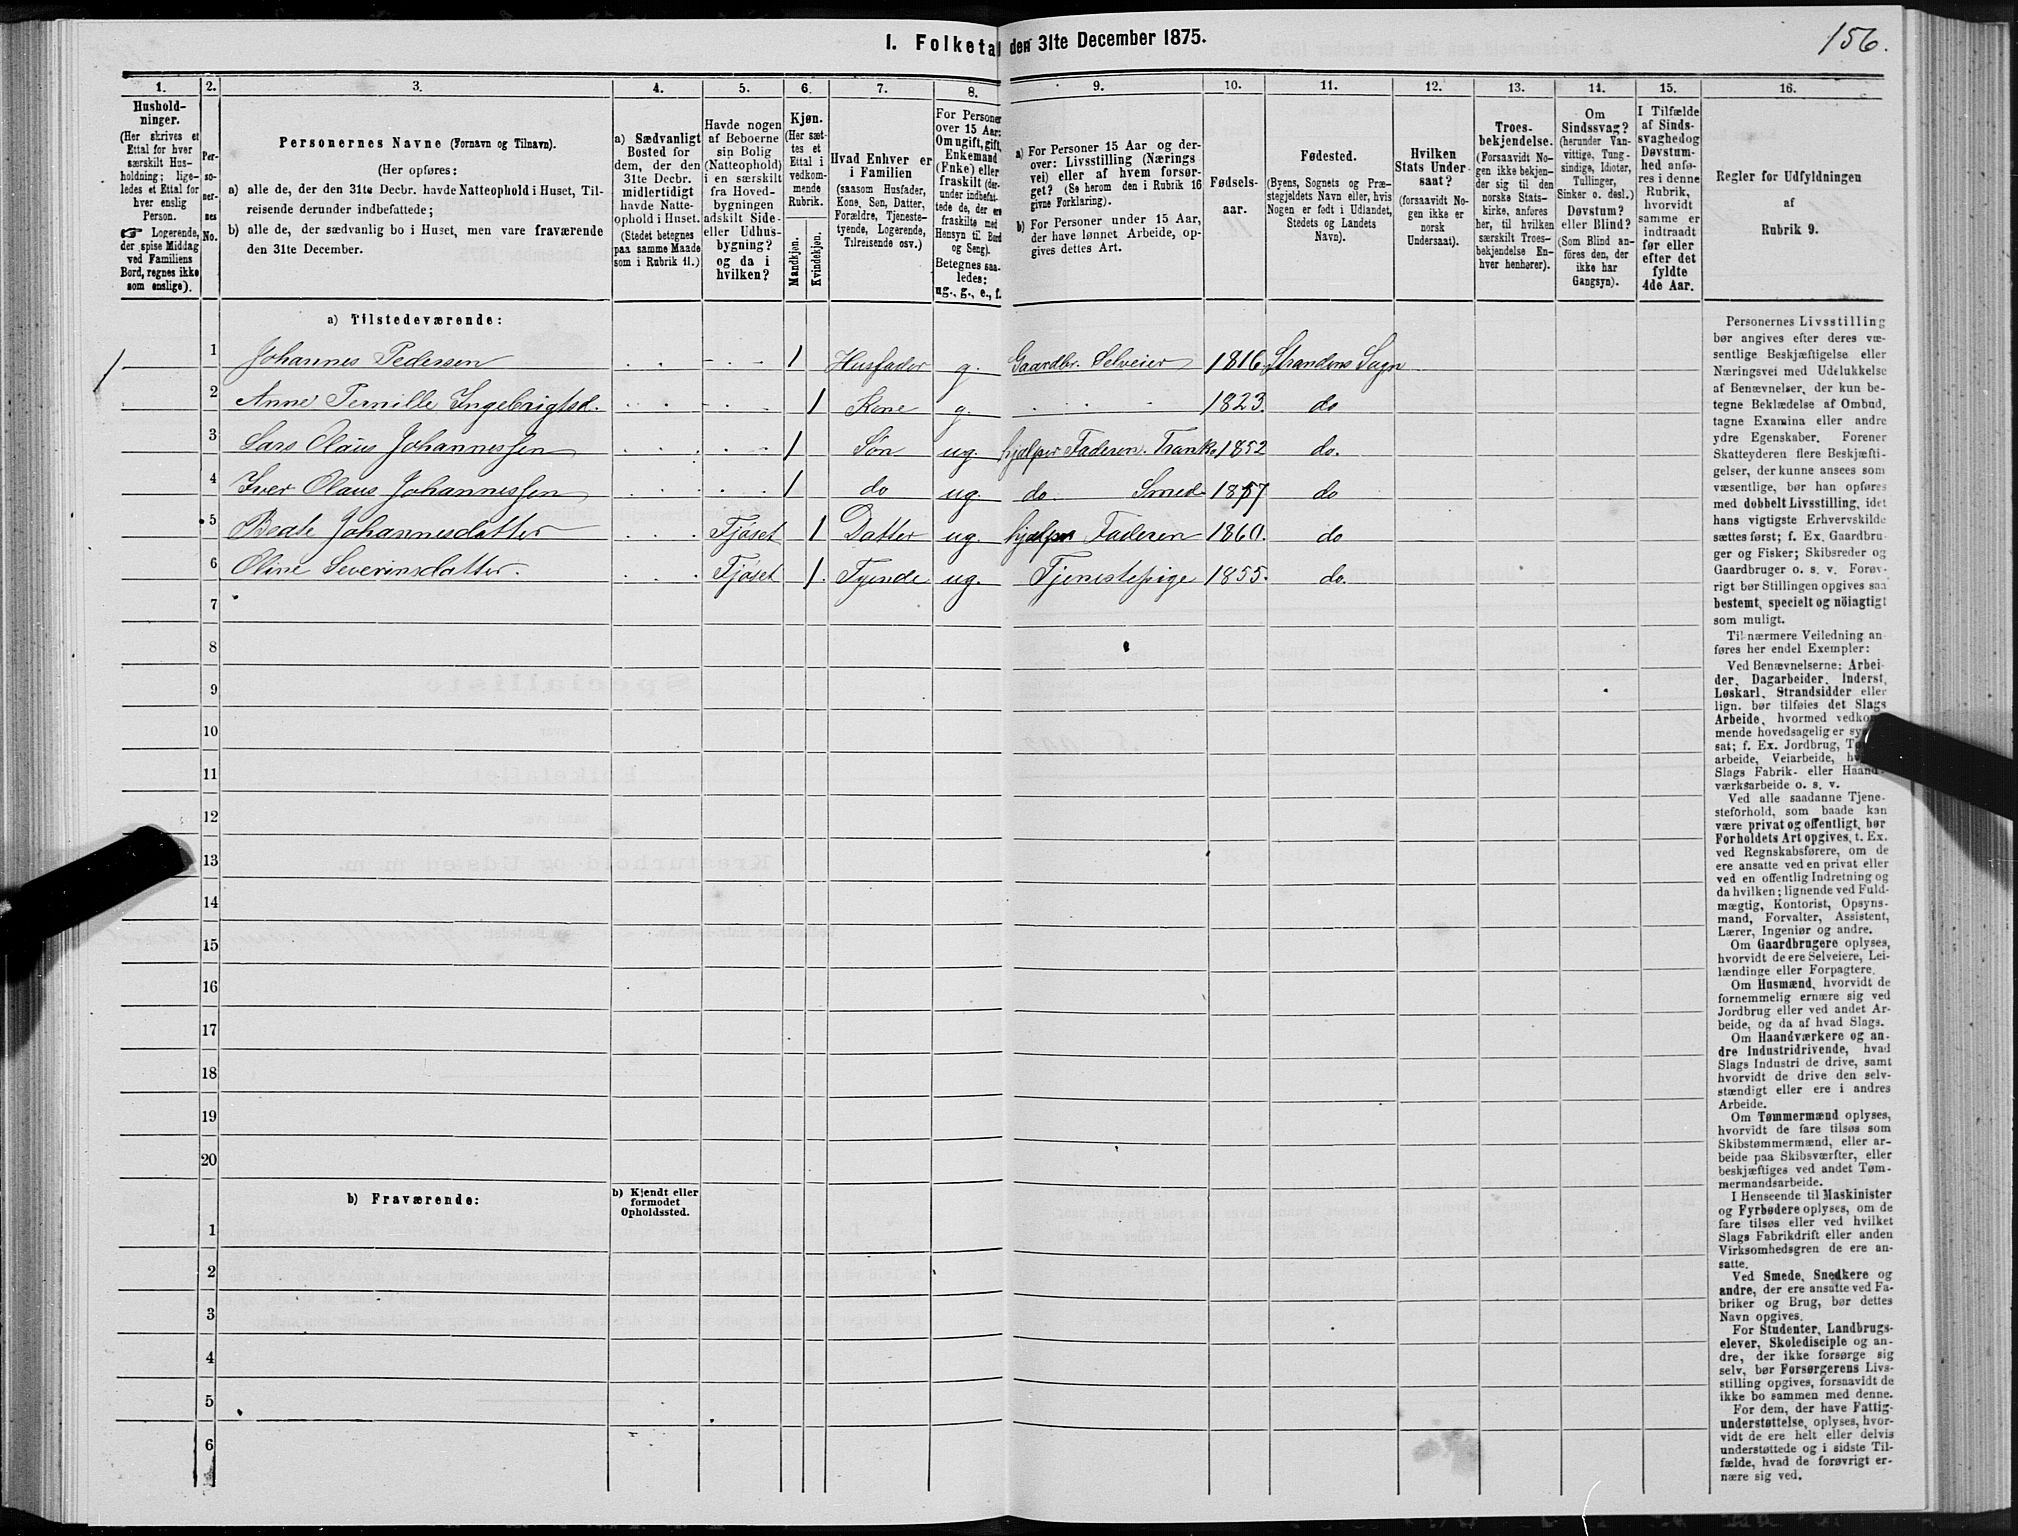 156.
I. Folketal den 31te December 1875.
1. 2. 3. 4. 5. 6. 7. 8. 9. 10. 11. 12. 13. 14. 15. 16.
Hushold-
ninger.
(Her skrives et
Ettal for hver
særskilt Hus-
holdning; lige-
ledes et Ettal for
hver enslig
Person.
☞ Logerende,
der spise Middag
ved Familiens
Bord, regnes ikke
som enslige).
Per-
so-
ner-
nes
No.
Personernes Navne (Fornavn og Tilnavn).
(Her opføres:
a) alle de, der den 31te Decbr. havde Natteophold i Huset, Til-
reisende derunder indbefattede;
b) alle de, der sædvanlig bo i Huset, men vare fraværende
den 31te December.
a) Sædvanligt
Bosted for
dem, der den
31te Decbr.
midlertidigt
havde Natte-
ophold i Huset.
(Stedet betegnes
paa samme Maade
som i Rubrik 11.)
Havde nogen
af Beboerne
sin Bolig
(Natteophold)
i en særskilt
fra Hoved-
bygningen
adskilt Side-
eller Udhus-
bygning?
og da i
hvilken?
Kjøn.
(Her sæt-
tes et
Ettal i
vedkom-
mende
Rubrik.
Mandkjøn.
Kvindekjøn.
Hvad Enhver er
i Familien
(saasom Husfader,
Kone, Søn, Datter,
Forældre, Tjeneste-
tyende, Logerende,
Tilreisende osv.)
For Personer
over 15 Aar:
Om ugift, gift,
Enkemand
(Enke) eller
fraskilt (der-
under indbefat-
tede de, der ere
fraskilte med
Hensyn til Bord
og Seng).
Betegnes saa-
ledes:
ug., g., e., f.
a) For Personer 15 Aar og der-
over: Livsstilling (Nærings-
vei) eller af hvem forsør-
get? (Se herom den i Rubrik 16
givne Forklaring).
b) For Personer under 15 Aar,
der have lønnet Arbeide, op-
gives dettes Art.
Fødsels-
aar.
Fødested.
(Byens, Sognets og Præ-
stegjeldets Navn eller, hvis
Nogen er født i Udlandet,
Stedets og Landets
Navn).
Hvilken
Stats Under-
saat?
(forsaavidt No-
gen ikke er
norsk
Undersaat).
Troes-
bekjendelse.
(Forsaavidt No-
gen ikke bekjen-
der sig til den
norske Stats-
kirke, anføres
her, til hvilken
særskilt Troes-
bekjendelse En-
hver henhører).
Om
Sindssvag?
(herunder Van-
vittige, Tung-
sindige, Idioter,
Tullinger,
Sinker o. desl.)
Døvstum?
eller Blind?
(Som Blind an-
føres den, der
ikke har
Gangsyn).
I Tilfælde
af Sinds-
svaghed og
Døvstum-
hed anfø-
res i denne
Rubrik,
hvorvidt
samme er
indtraadt
før eller
efter det
fyldte
4de Aar.
Regler for Udfyldningen
af
Rubrik 9.
a) Tilstedeværende:
1 1 Johannes Pedersen 1 Husfader g. Gaardbr. Selveier 1816. Strandens Sogn
2 Anne Pernille Ingebrigtsd. 1 Kone g. 1823. do
3 Lars Olaus Johannessen 1 Søn ug. hjelper Faderen. 1852 do.
4 Iver Olaus Johannessen 1 do ug. do. Smed 1857 do
5 Beate Johannesdatter Fjøset 1 Datter ug. hjelper Faderen 1860. do
6 Oline Severinsdatter. Fjøset 1. Tyende ug. Tjenestepige 1855. do.
7
8
9
10
11
12
13
14
15
16
17
18
19
20
b) Fraværende:
b) Kjendt eller
formodet
Opholdssted.
1
2
3
4
5
6
Personernes Livsstilling
bør angives efter deres væ-
sentlige Beskjæftigelse eller
Næringsvei med Udelukkelse
af Benævnelser, der kun be-
tegne Beklædelse af Ombud,
tagne Examina eller andre
ydre Egenskaber. Forener
Skatteyderen flere Beskjæfti-
gelser, der kunne ansees som
væsentlige, bør han opføres
med dobbelt Livsstilling, idet
hans vigtigste Erhvervskilde
sættes først; f. Ex. Gaardbru-
ger og Fisker; Skibsreder og
Gaardbruger o. s. v. Forøv-
rigt bør Stillingen opgives saa
bestemt, specielt og nöiagtigt
som muligt.
Til nærmere Veiledning an-
føres her endel Exempler:
Ved Benævnelserne: Arbei-
der, Dagarbeider, Inderst,
Løskarl, Strandsidder eller
lign. bør tilføies det Slags
Arbeide, hvormed vedkom-
mende hovedsagelig er syssel-
sat; f. Ex. Jordbrug,
arbeide, Veiarbeide,
Slags Fabrik- eller Haand-
værksarbeide o. s. v.
Ved alle saadanne Tjene-
steforhold, som baade kan
være privat og offentligt, bør
Forholdets Art opgives, t. Ex.
ved Regnskabsførere, om de
ere ansatte ved en privat eller
ved en offentlig Indretning og
da hvilken; lignende ved Fuld-
mægtig, Kontorist, Opsyns-
mand, Forvalter, Assistent,
Lærer, Ingeniør og andre.
Om Gaardbrugere oplyses,
hvorvidt de ere Selveiere, Lei-
lændinge eller Forpagtere.
Om Husmænd, hvorvidt de
fornemmelig ernære sig ved
Jordbrug eller ved andet Ar-
beide, og da af hvad Slags.
Om Haandværkere og an-
dre Industridrivende, hvad
Slags Industri de drive, samt
hvorvidt de drive den selv-
stændigt eller ere i andres
Arbeide.
Om Tømmermænd oplyses,
hvorvidt de fare tilsøs som
Skibstømmermænd, eller ar-
beide paa Skibsværfter, eller
beskjæftiges ved andet Tøm-
mermandsarbeide.
I Henseende til Maskinister
og Fyrbødere oplyses, om de
fare tilsøs eller ved hvilket
Slags Fabrikdrift eller anden
Virksomhedsgren de ere an-
satte.
Ved Smede, Snedkere og
andre, der ere ansatte ved Fa-
briker og Brug, bør dettes
Navn opgives.
For Studenter, Landbrugs-
elever, Skoledisciple og an-
dre, der ikke forsørge sig
selv, bør Forsørgerens Livs-
stilling opgives, forsaavidt de
ikke bo sammen med denne.
For dem, der have Fattig-
understøttelse, oplyses, hvor-
vidt de ere helt eller delvis
understøttede og i sidste Til-
fælde, hvad de forøvrigt er-
nære sig ved.